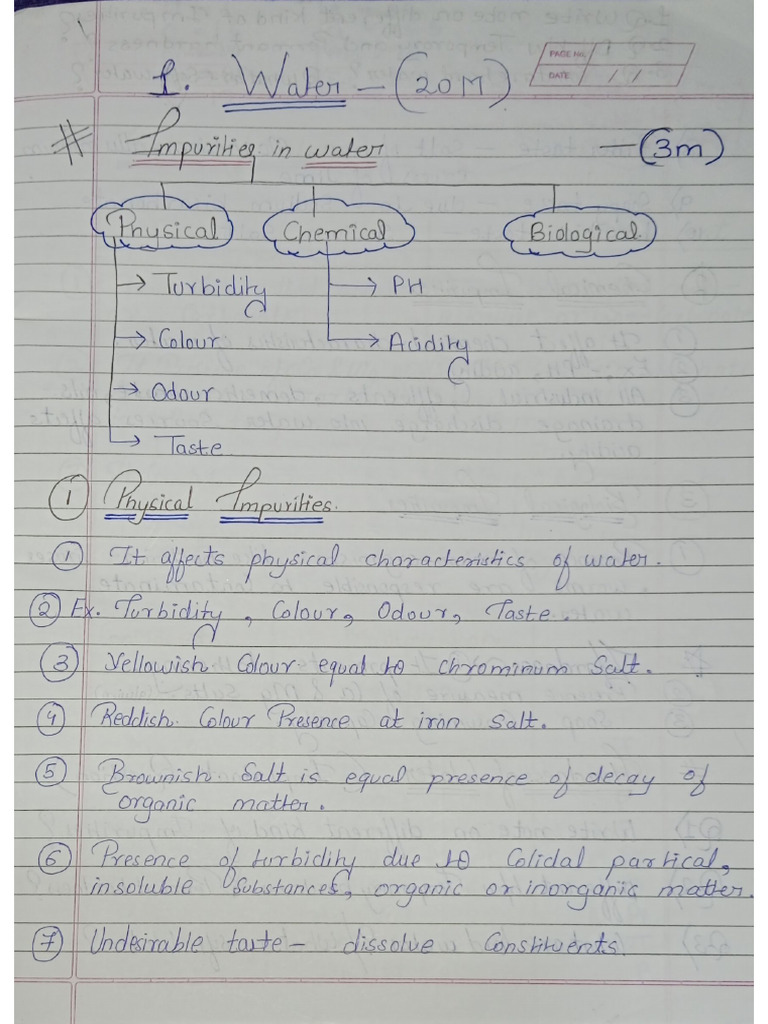 1. Water - (20M)
PAGE No.
DATE / /
# Impurities in water - (3m)
Physical Chemical Biological
→ Turbidity → PH
→ Colour → Acidity
→ Odour
→ Taste
① Physical Impurities.
① It affects physical characteristics of water.
② Ex. Turbidity, Colour, Odour, Taste.
③ Yellowish Colour equal to chrominum Salt.
④ Reddish Colour Presence at iron Salt.
⑤ Brownish Salt is equal presence of decay of
organic matter.
⑥ Presence of turbidity due to Colidal partical,
insoluble substances, organic or inorganic matter.
⑦ Undesirable taste - dissolve Constituents.